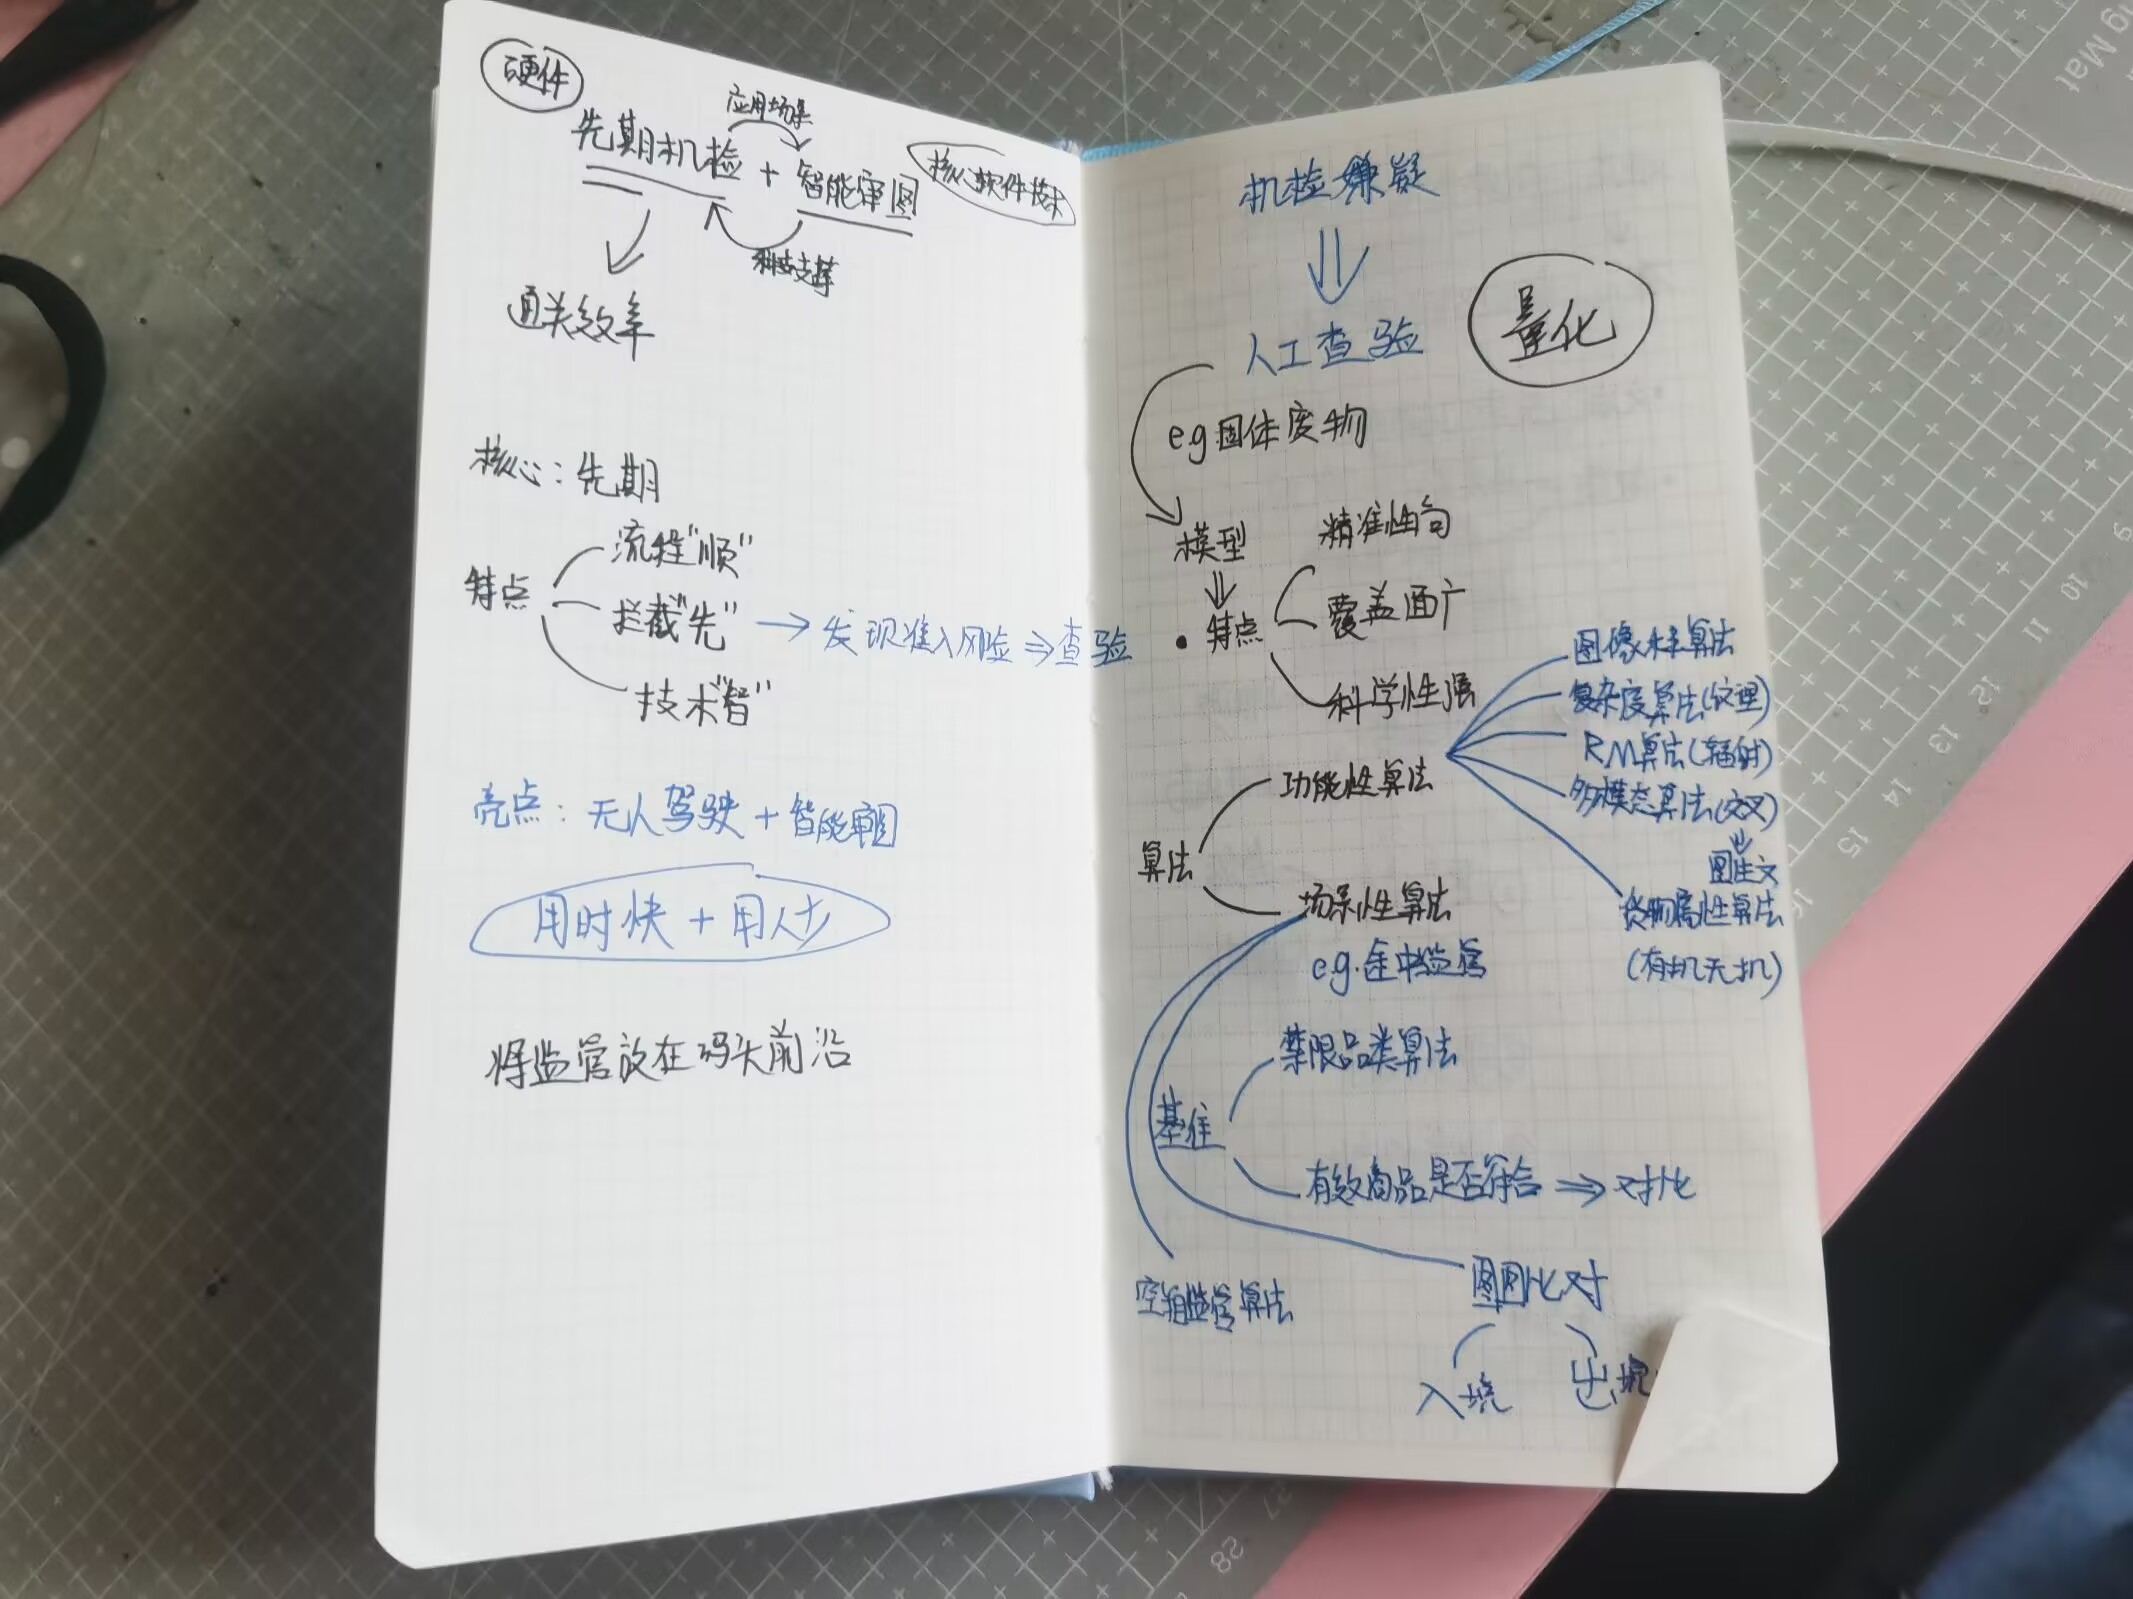 硬件
应用场景
先期机检 + 智能审图
核心软件技术
科技支撑
通关效率
核心：先期
特点
流程“顺”
拦截“先” → 发现准入风险 ⇒ 查验
技术“智”
亮点：无人驾驶 + 智能审图
用时快 + 用人少
将监管放在码头前沿
机检嫌疑
人工查验
量化
e.g 固体废物
模型
精准性高
• 特点
覆盖面广
科学性强
算法
功能性算法
图像样算法
复杂度算法(纹理)
RM算法(辐射)
多模态算法(交叉)
图生文
货物属性算法
(有机无机)
场景性算法
e.g. 途中监管
基准
禁限品类算法
有效商品是否符合 ⇒ 对比
空箱监管算法
图图比对
入境
出境